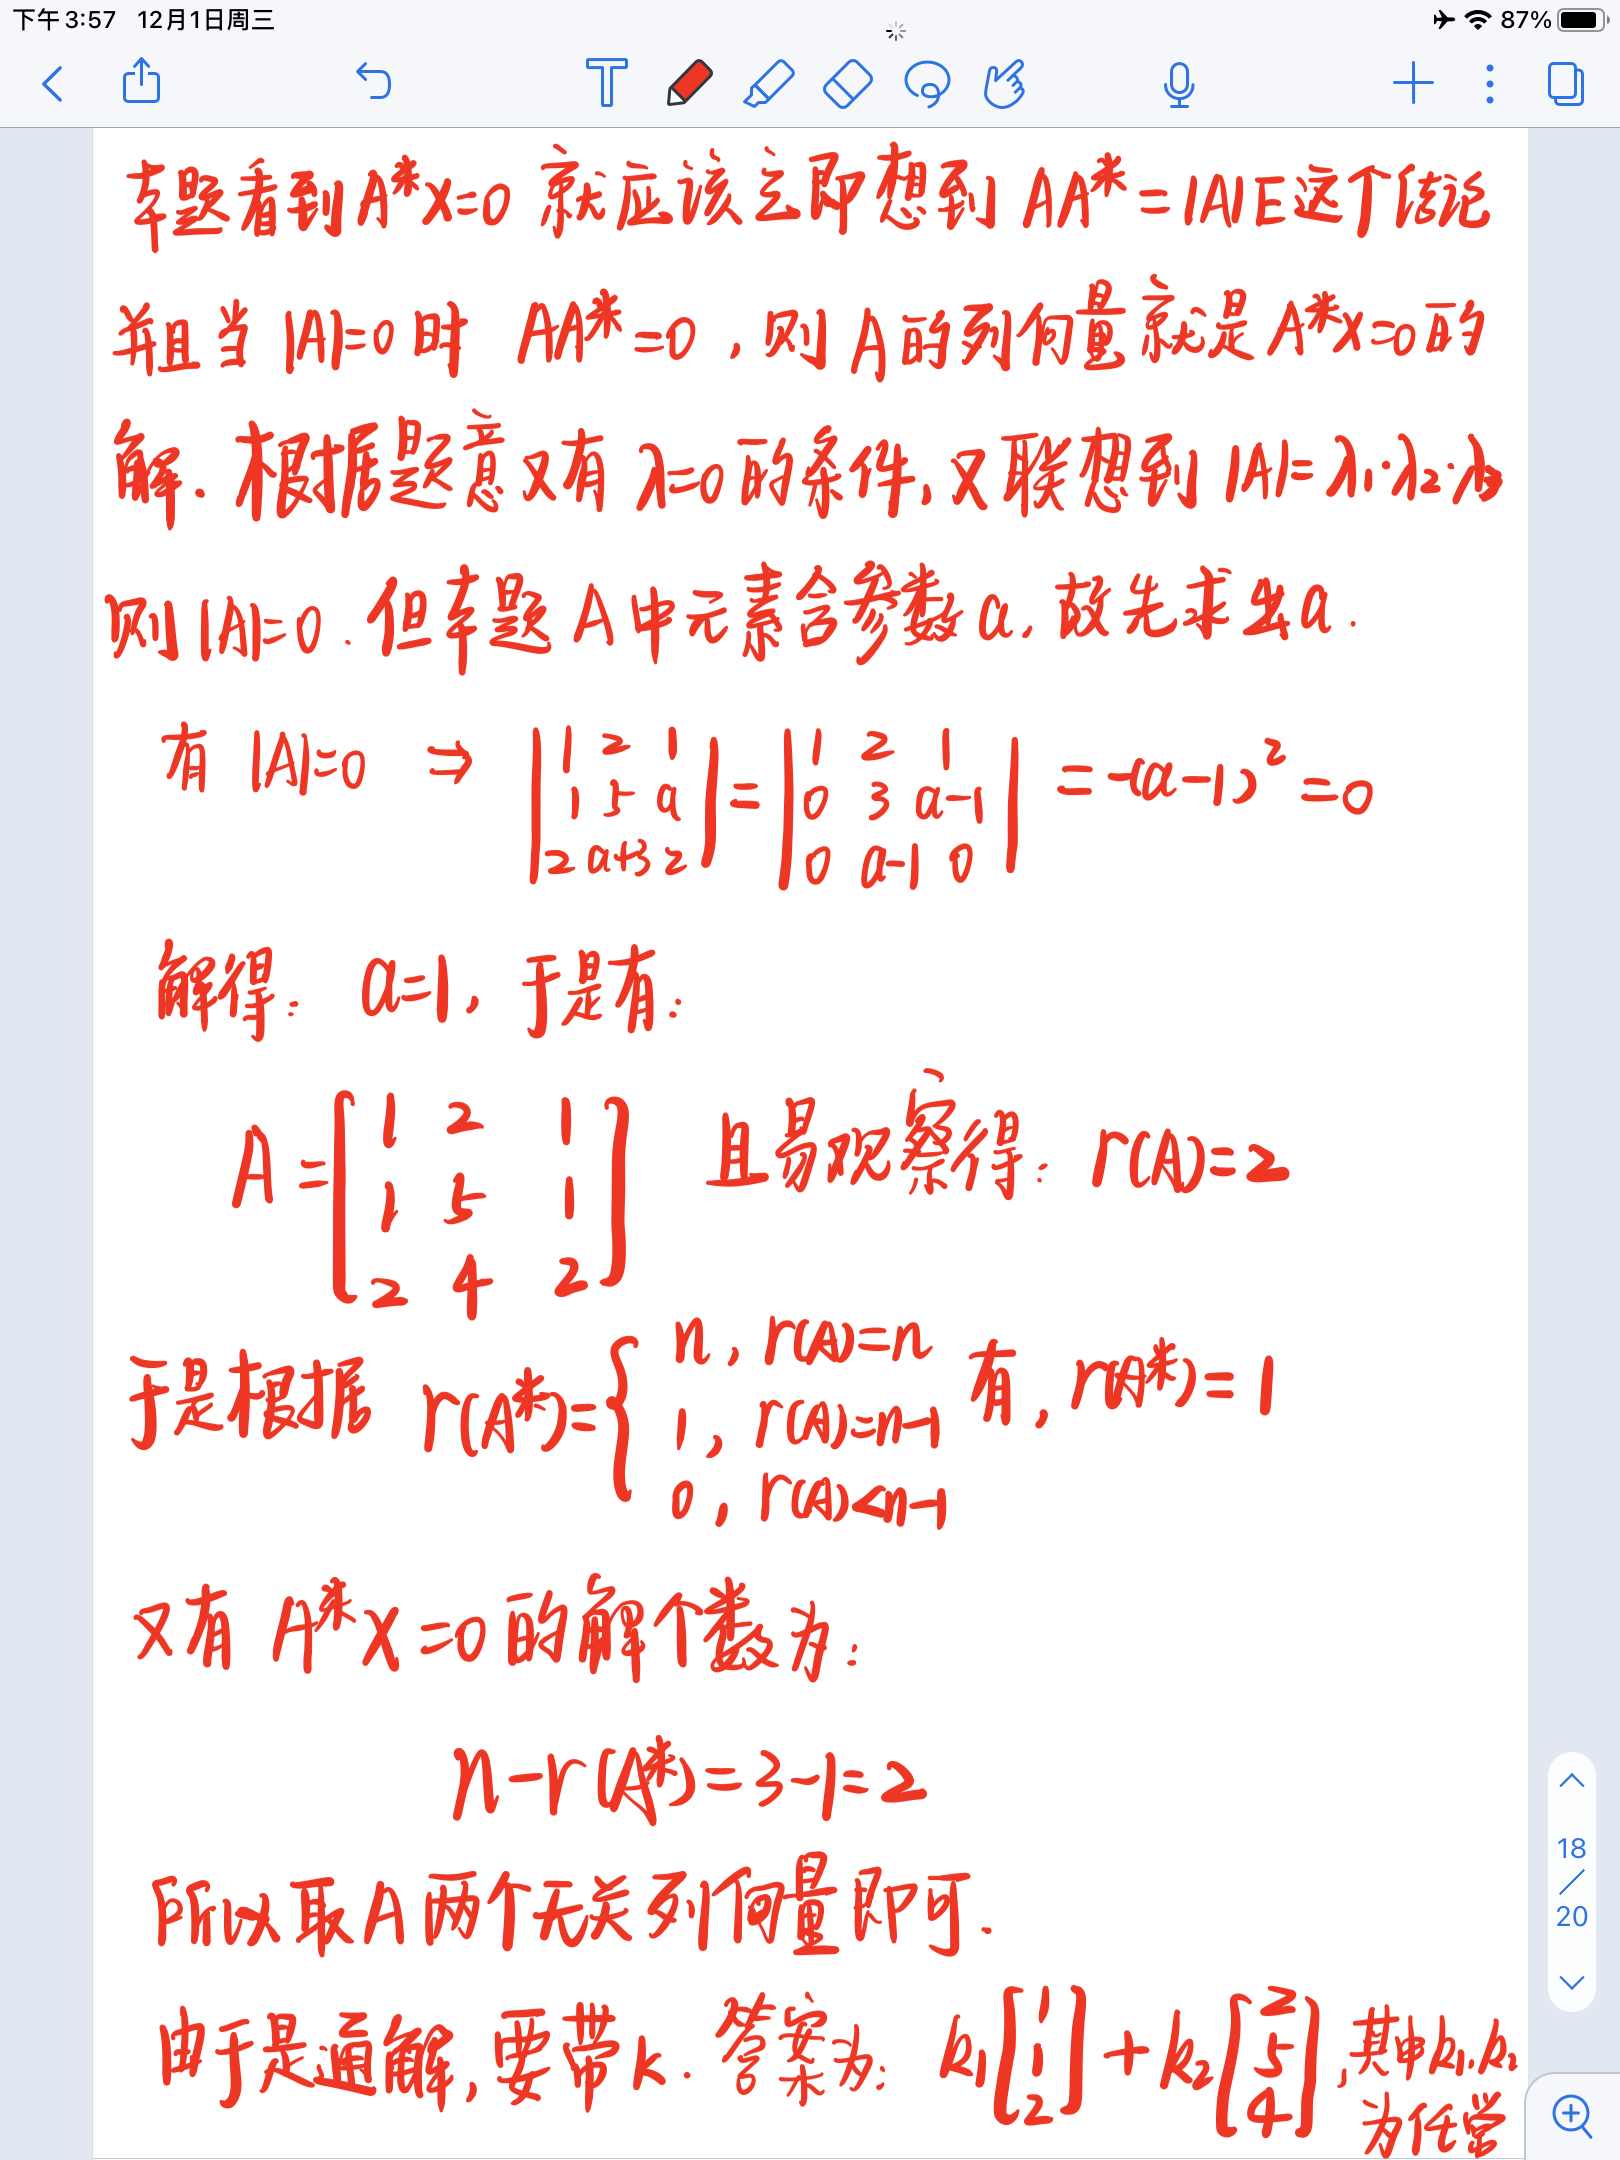 下午3:57 12月1日周三 87%
本题看到A*X=0 就应该立即想到 AA*=|A|E这个结论
并且当 |A|=0时 AA*=0，则A的列向量就是A*X=0的
解．根据题意又有λ=0的条件，又联想到|A|=λ₁·λ₂·λ₃
则|A|=0．但本题A中元素含参数a，故先求出a．
有 |A|=0 ⇒ |1 2 1; 1 5 a; 2 a+3 2| = |1 2 1; 0 3 a-1; 0 a-1 0| = -(a-1)² = 0
解得：a=1，于是有：
A=[1 2 1; 1 5 1; 2 4 2] 且易观察得：r(A)=2
于是根据 r(A*)={n，r(A)=n; 1，r(A)=n-1; 0，r(A)<n-1 有，r(A*)=1
又有 A*X=0的解个数为：
n-r(A*)=3-1=2
所以取A两个无关列向量即可．
由于是通解，要带k．答案为：k₁[1 1 2]+k₂[2 5 4]，其中k₁,k₂
为任常
18
20